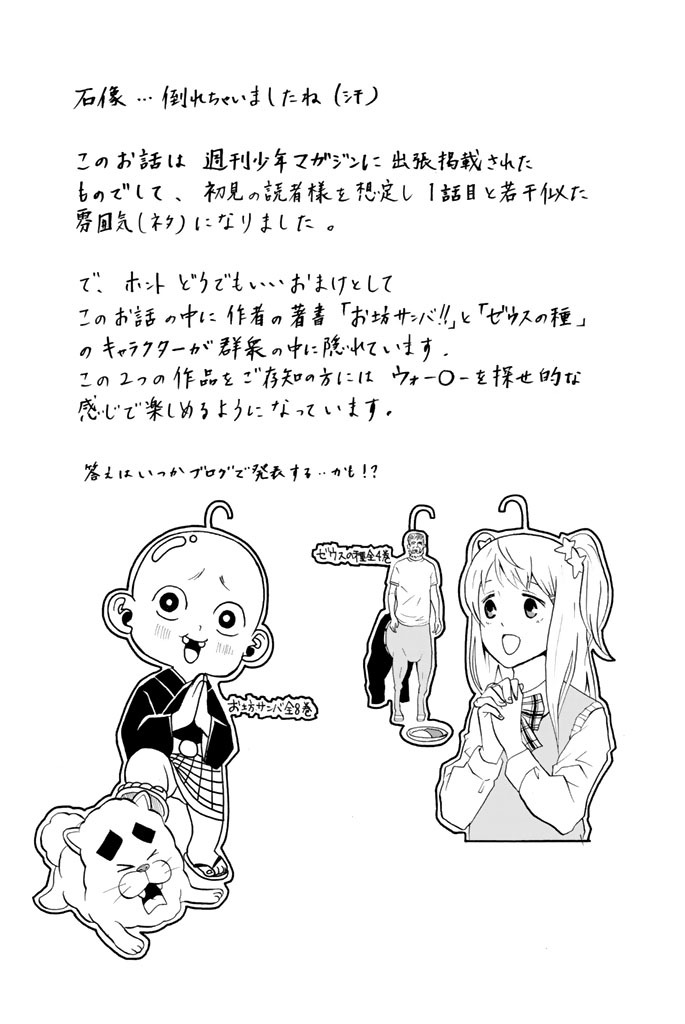 石像…倒れちゃいましたね(汗)
このお話は 週刊少年マガジンに出張掲載された
ものでして、初見の読者様を想定し1話目と若干似た
雰囲気(ネタ)になりました。
で、ホント どうでもいいおまけとして
このお話の中に作者の著書「お坊サンバ!!」と「ゼウスの種」
のキャラクターが群衆の中に隠れています.
この2つの作品をご存知の方には ウォー〇ーを探せ的な
感じで楽しめるようになっています。
答えはいつかブログで発表する‥かも!?
ゼウスの種全4巻
お坊サンバ全8巻